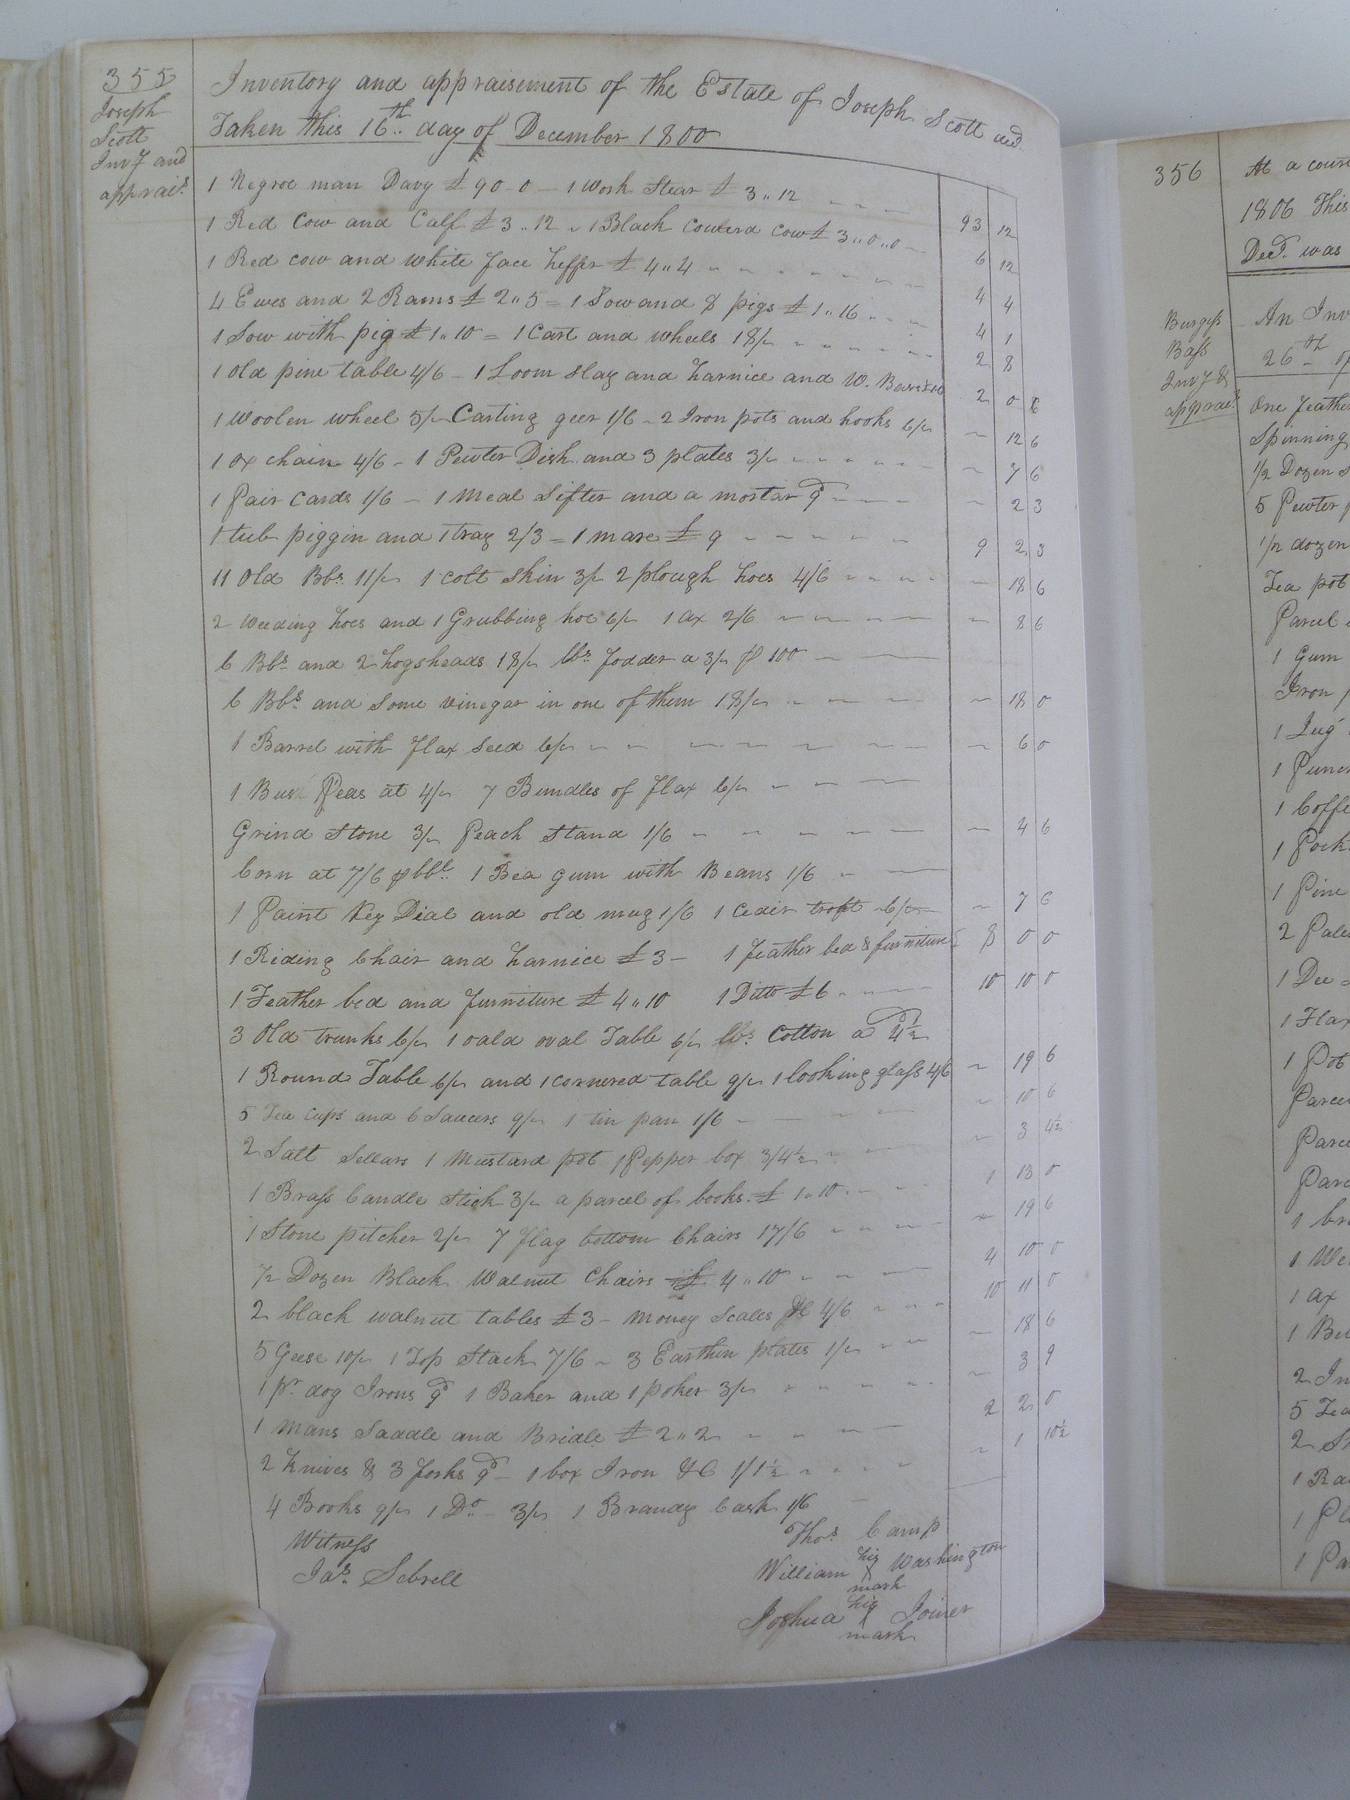 355
Joseph
Scott
Invy and
apprais.t
Inventory and appraisement of the Estate of Joseph Scott decd.
Taken this 16th day of December 1800
1 Negroe man Davy £ 90-0 - 1 Work Stear £ 3,,12 93 12
1 Red Cow and Calf £ 3..12 - 1 Black Cow £ 3,,0,,0 6 12
1 Red cow and white face heffer £ 4,,4 4 4
4 Ewes and 2 Rams £ 2,,5 = 1 Sow and 8 pigs £ 1,,16 4 1
1 Sow with pig £ 1..10 = 1 Cart and wheels 18/- 2 8
1 Old pine table 4/6 - 1 Loom Slay and harnice and W. 2 0 6
1 Woolen wheel 5/- Carting geer 1/6 - 2 Iron pots and hooks 6/- - 12 6
1 ox chain 4/6 - 1 Pewter Dish and 3 plates 3/- - 7 6
1 Pair Cards 1/6 - 1 Meal Sifter and a mortar 9d - 2 3
1 tub piggin and 1 tray 2/3 = 1 mare £ 9 9 2 3
11 Old Bbs. 11/- 1 Colt Skin 3/- 2 plough hoes 4/6 - 18 6
2 Weeding hoes and 1 Grubbing hoe 6/- 1 ax 2/6 - 8 6
6 Bbs and 2 hogsheads 18/- lbs. fodder a 3/- p 100
6 Bbs and some vinegar in one of them 18/- - 18 0
1 Barrel with flax seed 6/- - 6 0
1 Bus Peas at 4/- 7 Bundles of flax 6/-
Grind Stone 3/- Peach Stand 1/6 - 4 6
Corn at 7/6 p bbl. 1 Bea gum with Beans 1/6
1 Paint Key Dial and old mug 1/6 1 Ceder 6/- - 7 6
1 Riding Chair and harnice £ 3 - 1 feather bed & furniture 8 0 0
1 Feather bed and furniture £ 4,,10 1 Ditto £ 6 10 10 0
3 Old trunks 6/- 1 oald oval Table 6/- lbs. Cotton a 4½d
1 Round Table 6/- and 1 cornered table 9/- 1 looking glass 4/6 - 19 6
5 Tea Cups and 6 Saucers 9/- 1 tin pan 1/6 - 10 6
2 Salt Sellars 1 Mustard pot 1 Pepper box 3/4½ - 3 4½
1 Brass Candle Stick 3/- a parcel of books £ 1,,10 1 13 0
1 Stone pitcher 2/- 7 flag bottom Chairs 17/6 - 19 6
½ Dozen Black Walnut Chairs £ 4,,10 4 10 0
2 black walnut tables £ 3 - Money Scales &c 4/6 10 11 0
5 Geese 10/- 1 Top Stack 7/6 - 3 Earthen plates 1/- - 18 6
1 pr. dog Irons 9d 1 Baker and 1 poker 3/- - 3 9
1 Mans Saddle and Bridle £ 2,,2 2 2 0
2 Knives & 3 forks 9d - 1 box Iron &C 1/1½ - 1 10½
4 Books 9/- 1 Do. - 3/- 1 Brandy Cask 1/6
Witness
Jas. Sebrell
Thos. Camp
his
William X Washington
mark
his
Joshua X Joiner
mark
356
At a cour
1806 This
Decd. was
Burgess
Bass
Invy &
appraist
An Inv
26th of
One feathe
Spinning
1/2 Dozen
5 Pewter
1/2 dozen
Tea pot
Parcel
1 Gum
Iron
1 Jug
1
1 Coffe
1
1 Pine
2
1
1 Flax
1 Pot
Parce
Parc
Parc
1 br
1
1 ax
1
2
5 Tea
2
1
1
1